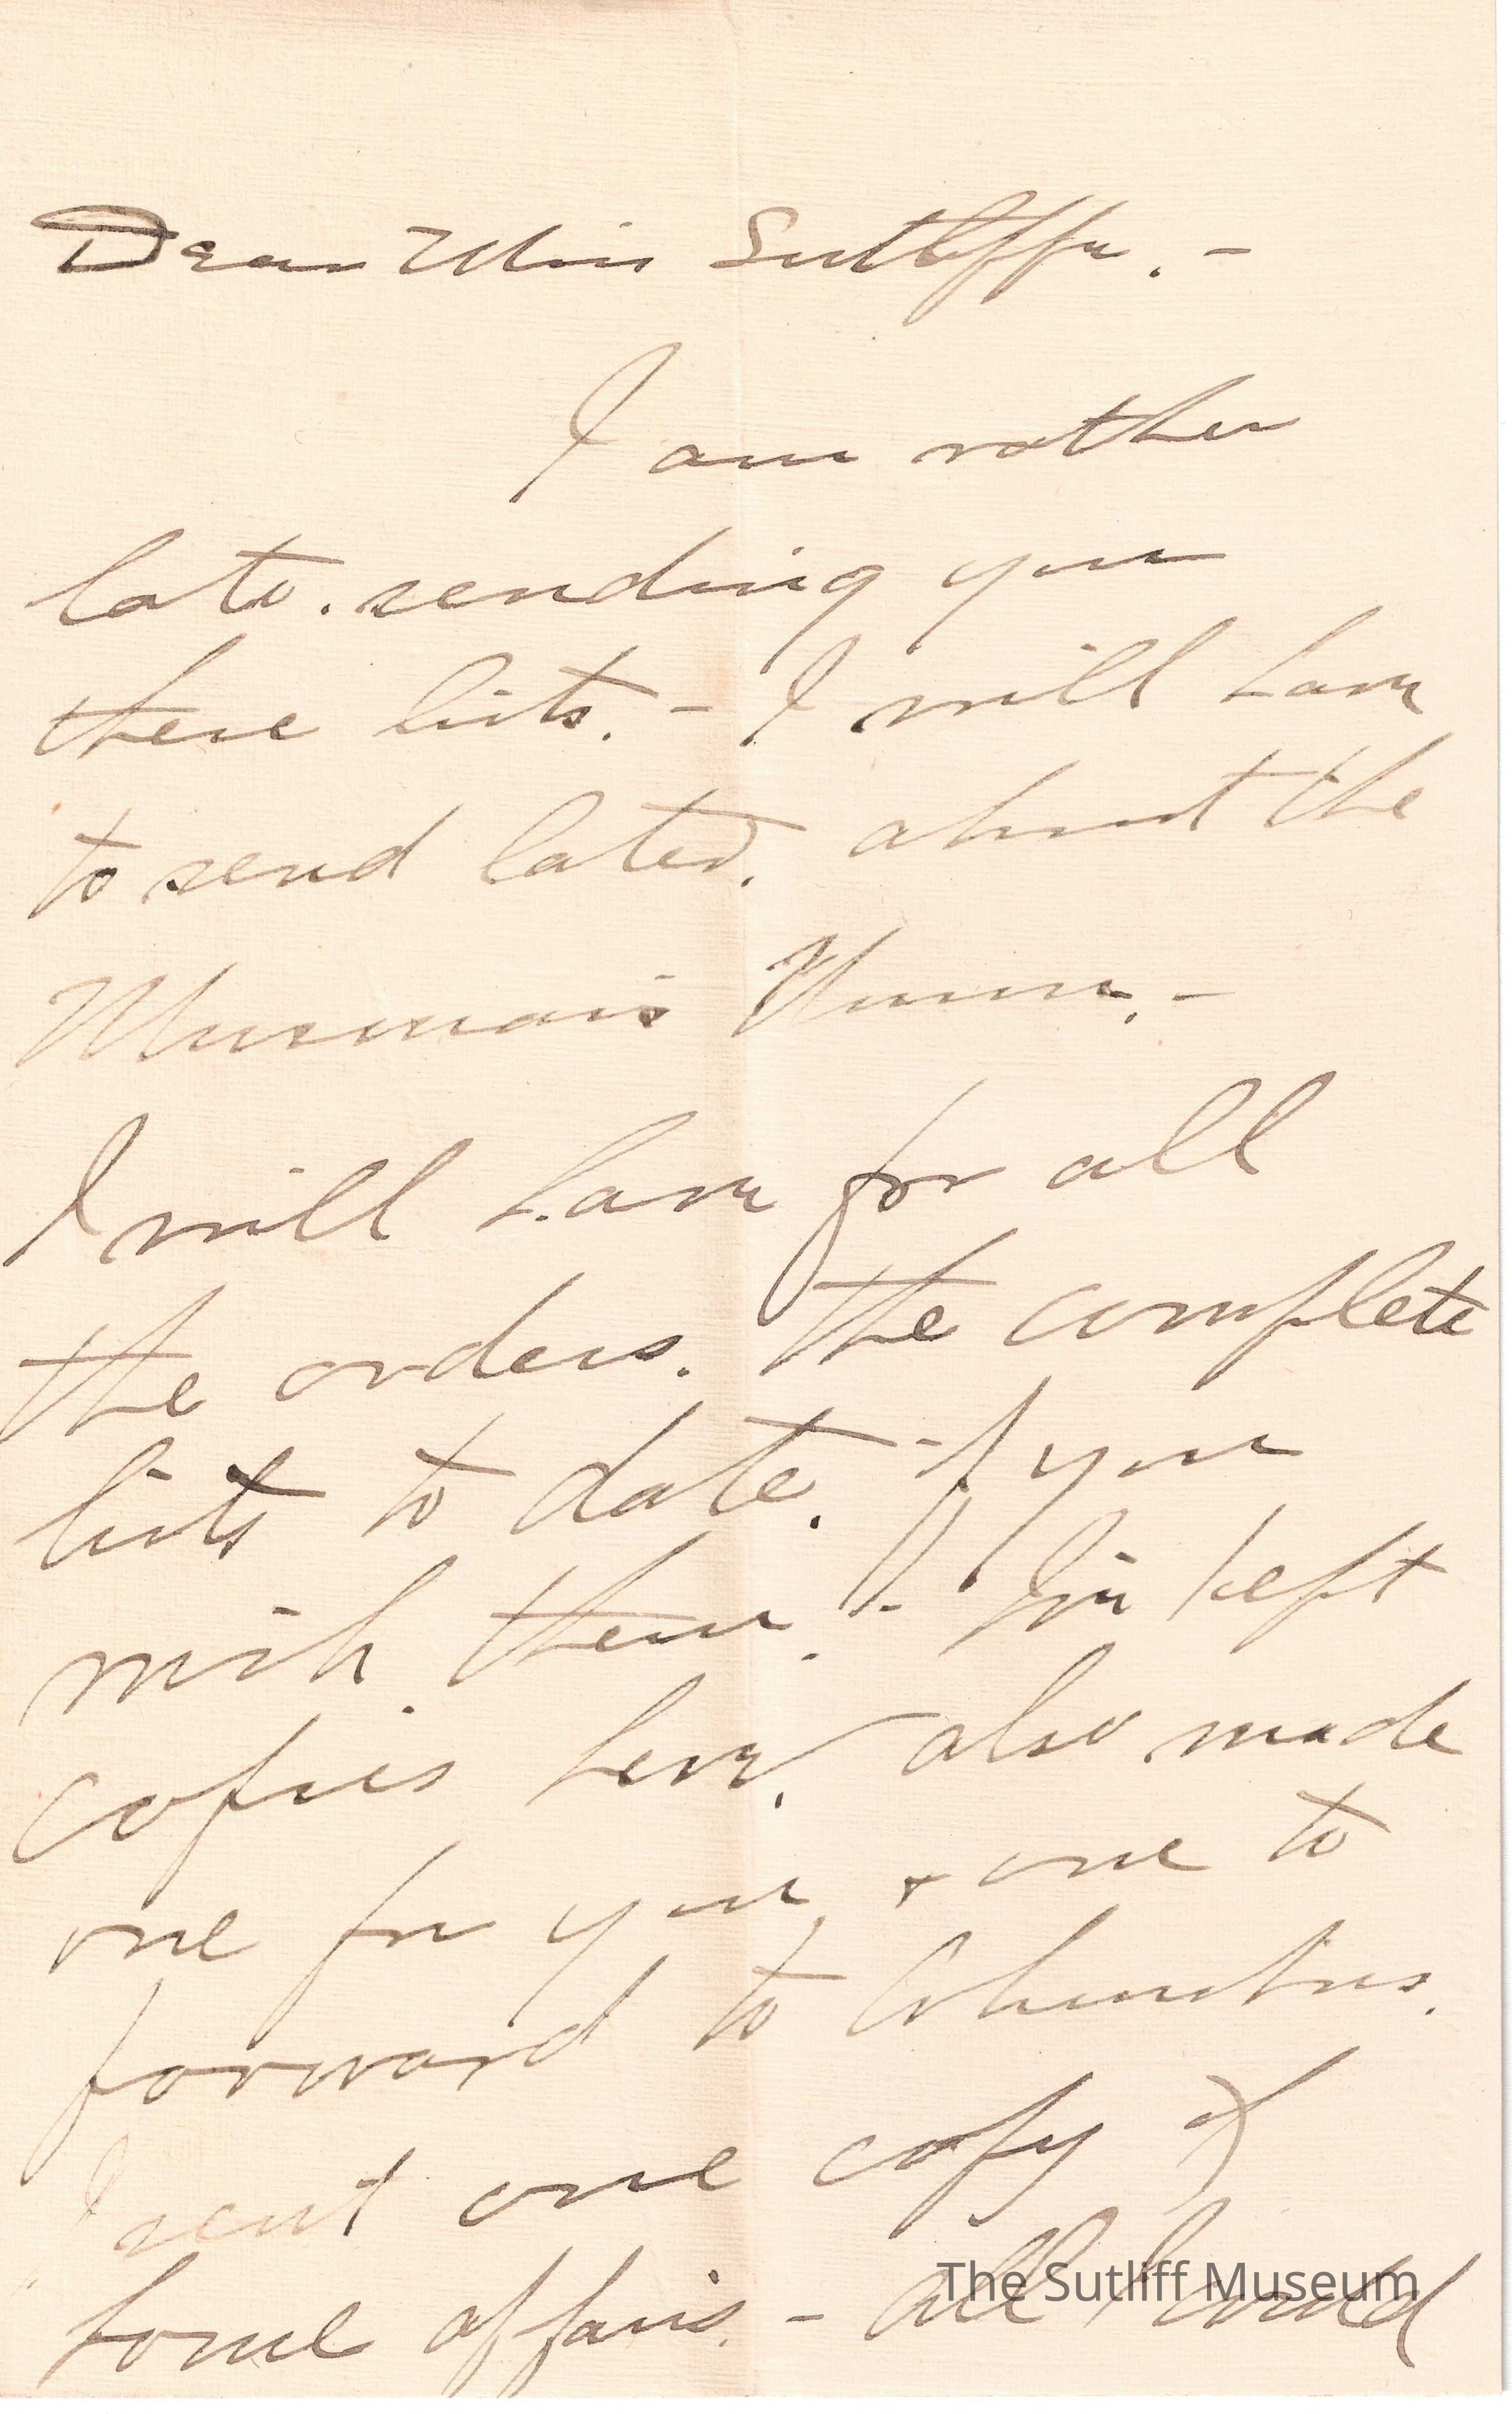 Dear Miss Sutliffe. -
I am rather
late. sending you
these lists. - I will have
to send later. about the
Woman's
I will have for all
the orders. The complete
lists to date. if you
wish. them. - I've kept
copies here. also made
one for you, & one to
forward to Columbus.
I sent one copy of
home affairs. - all I could
The Sutliff Museum